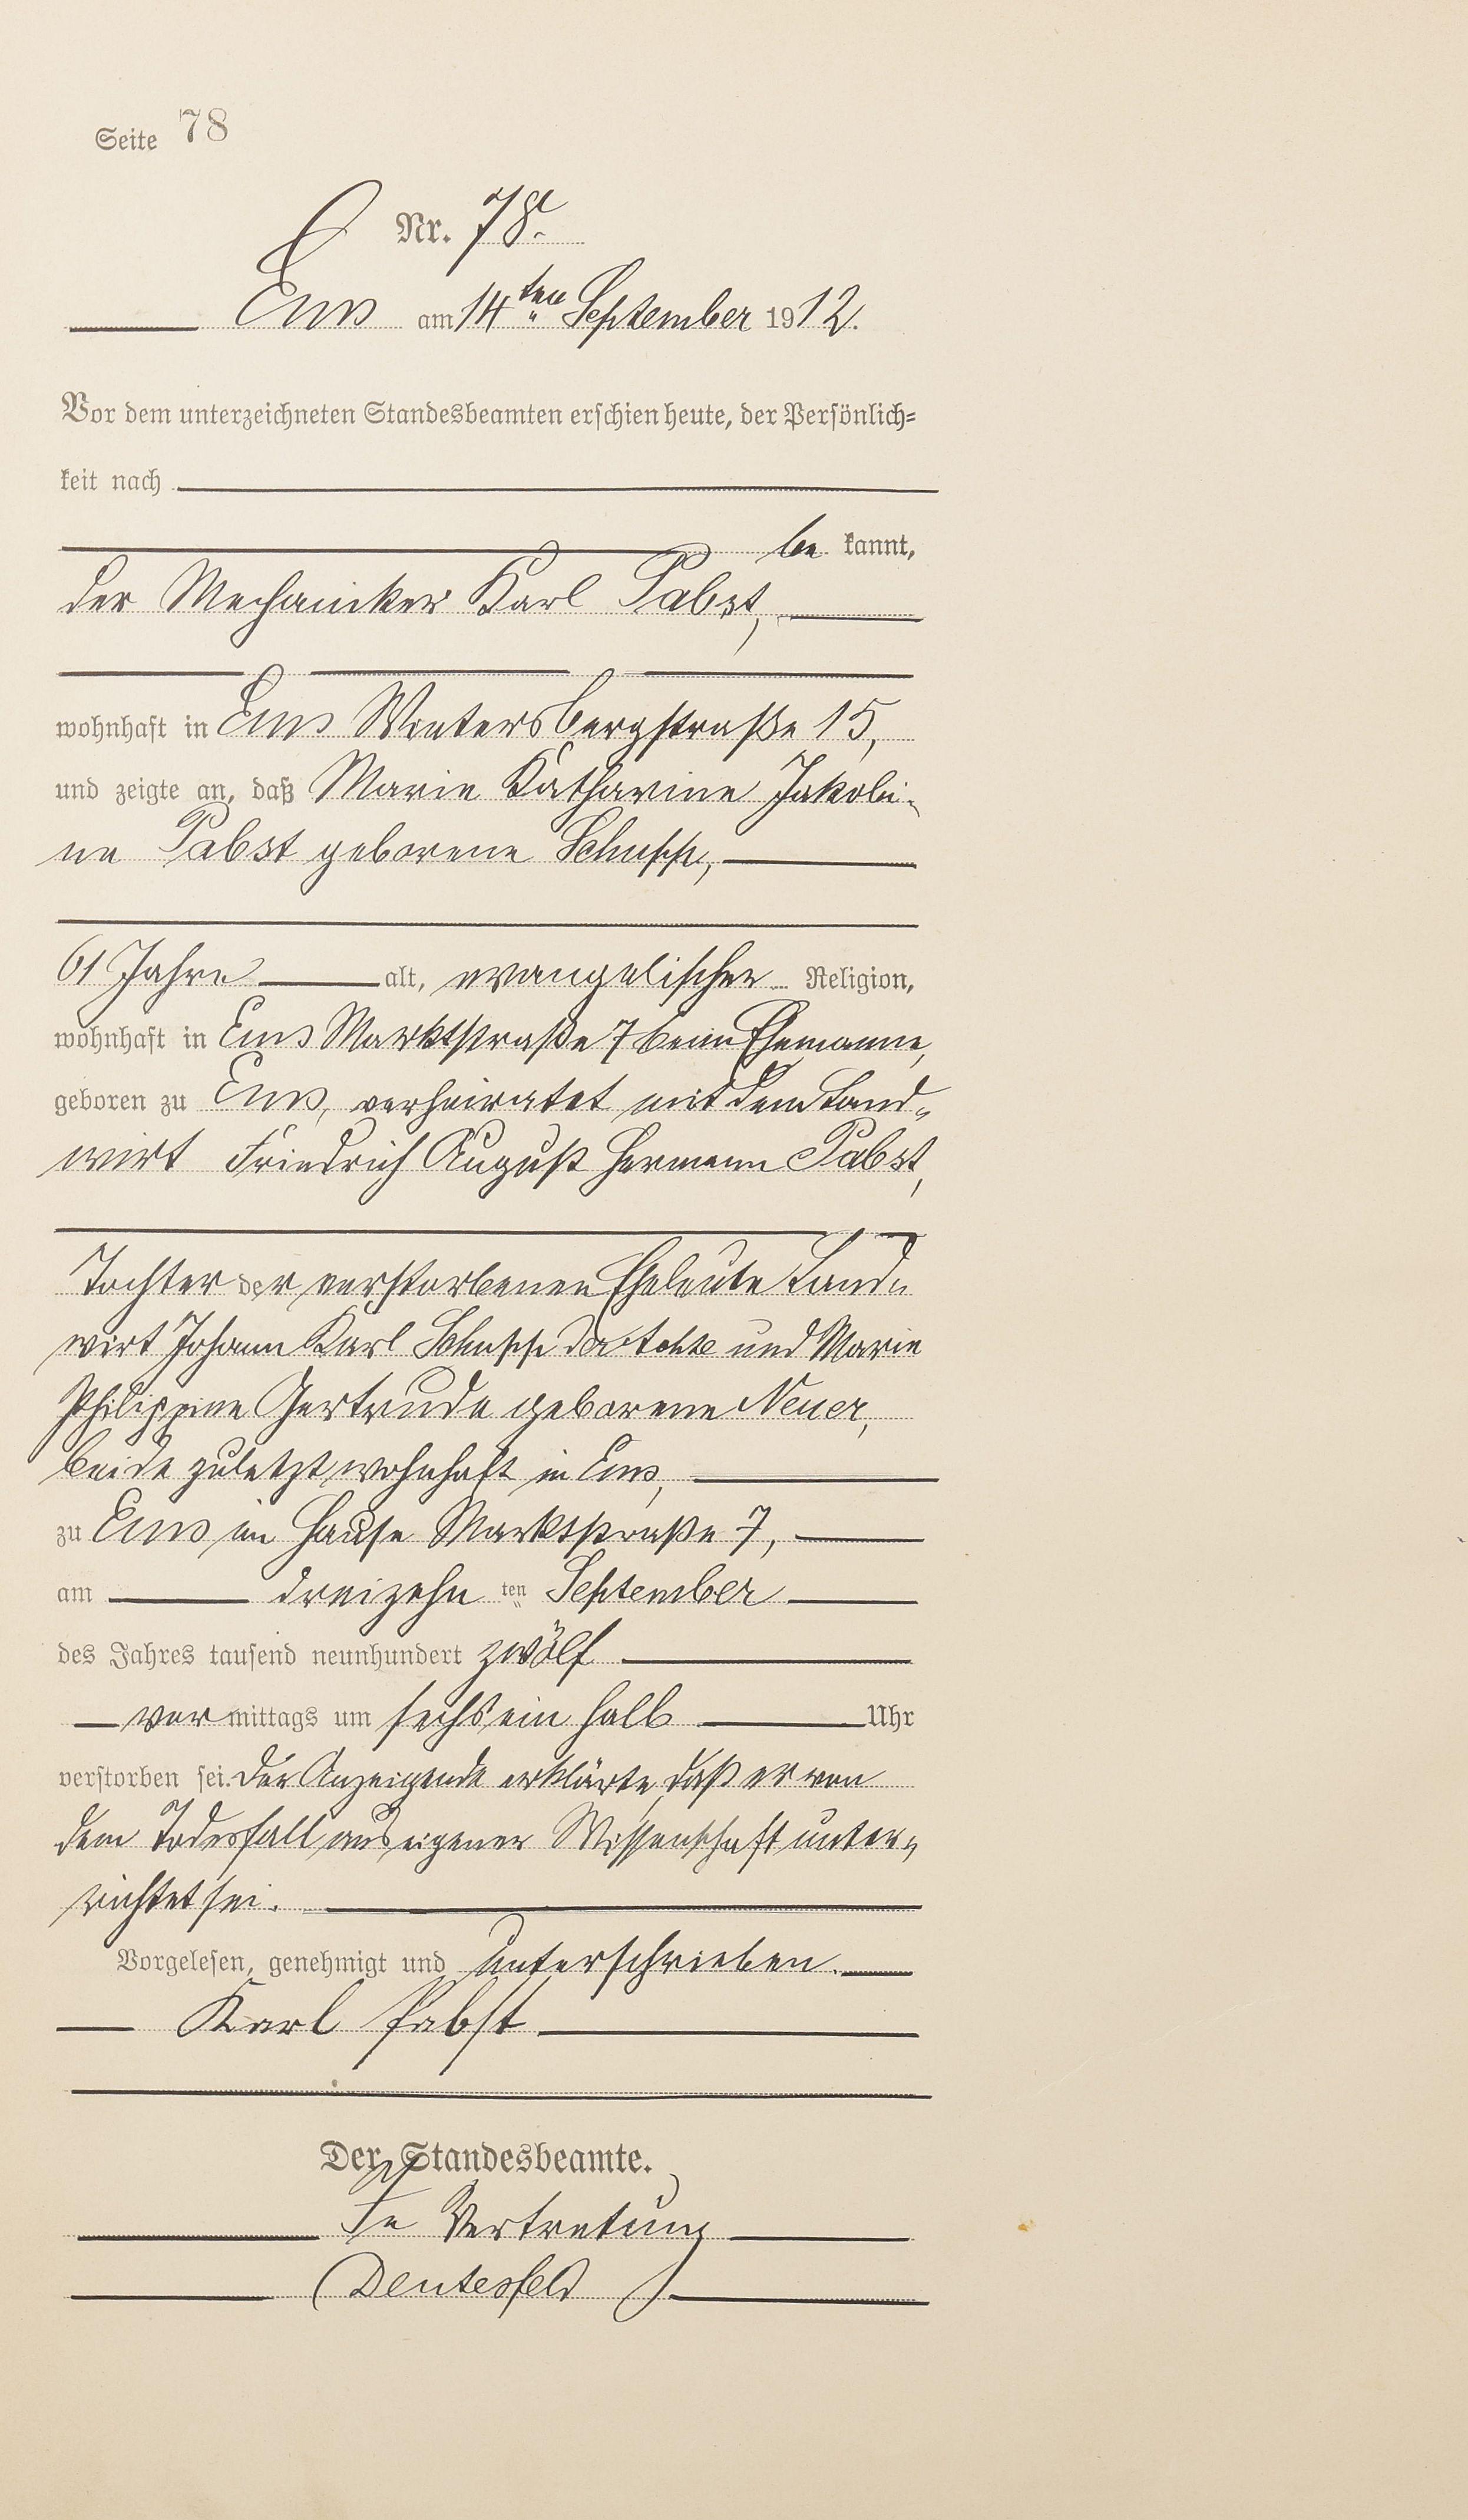 Seite 78
Nr. 78.
Ems am 14ten September 1912.
Vor dem unterzeichneten Standesbeamten erschien heute, der Persönlich=
keit nach
be kannt,
der Mechaniker Karl Pabst,
wohnhaft in Ems Wintersbergstraße 15,
und zeigte an, daß Marie Katharine Jakobi-
ne Pabst geborene Schupp,
61 Jahre alt, evangelischer Religion,
wohnhaft in Ems Marktstraße 7 beim Ehemanne,
geboren zu Ems, verheiratet mit dem Land-
wirt Friedrich August Hermann Pabst,
Tochter der verstorbenen Eheleute Land-
wirt Johann Karl Schupp der und Marie
Philippine Gertrude geborene Neuer,
beide zuletzt wohnhaft in Ems,
zu Ems im Hause Marktstraße 7,
am dreizehn ten September
des Jahres tausend neunhundert zwölf
vor mittags um sechs ein halb Uhr
verstorben sei. Der Anzeigende erklärte, daß er von
dem Todesfall aus eigener Wissenschaft unter-
richtet sei.
Vorgelesen, genehmigt und unterschrieben.
Karl Pabst
Der Standesbeamte.
In Vertretung